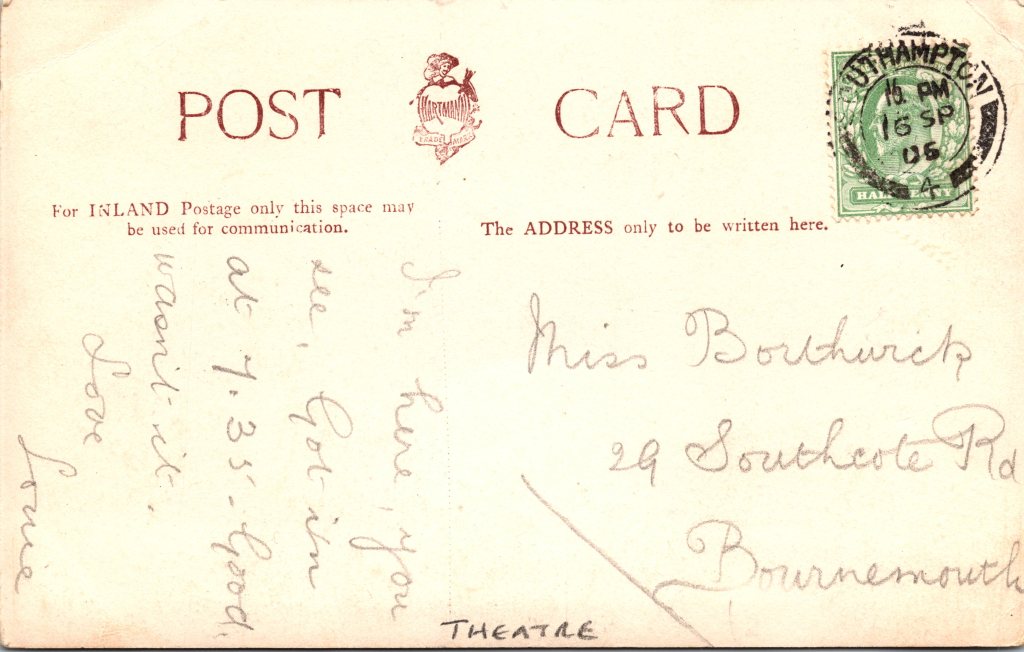 POST CARD
HARTMANN
TRADE MARK
SOUTHAMPTON
10. PM
16 SP
06
4
HALFPENNY
For INLAND Postage only this space may
be used for communication.
The ADDRESS only to be written here.
I'm here, you
see. Got in
at 7.35. Good,
wasn't it.
Love
Louie
Miss Borthwick
29 Southcote Rd
Bournemouth
THEATRE